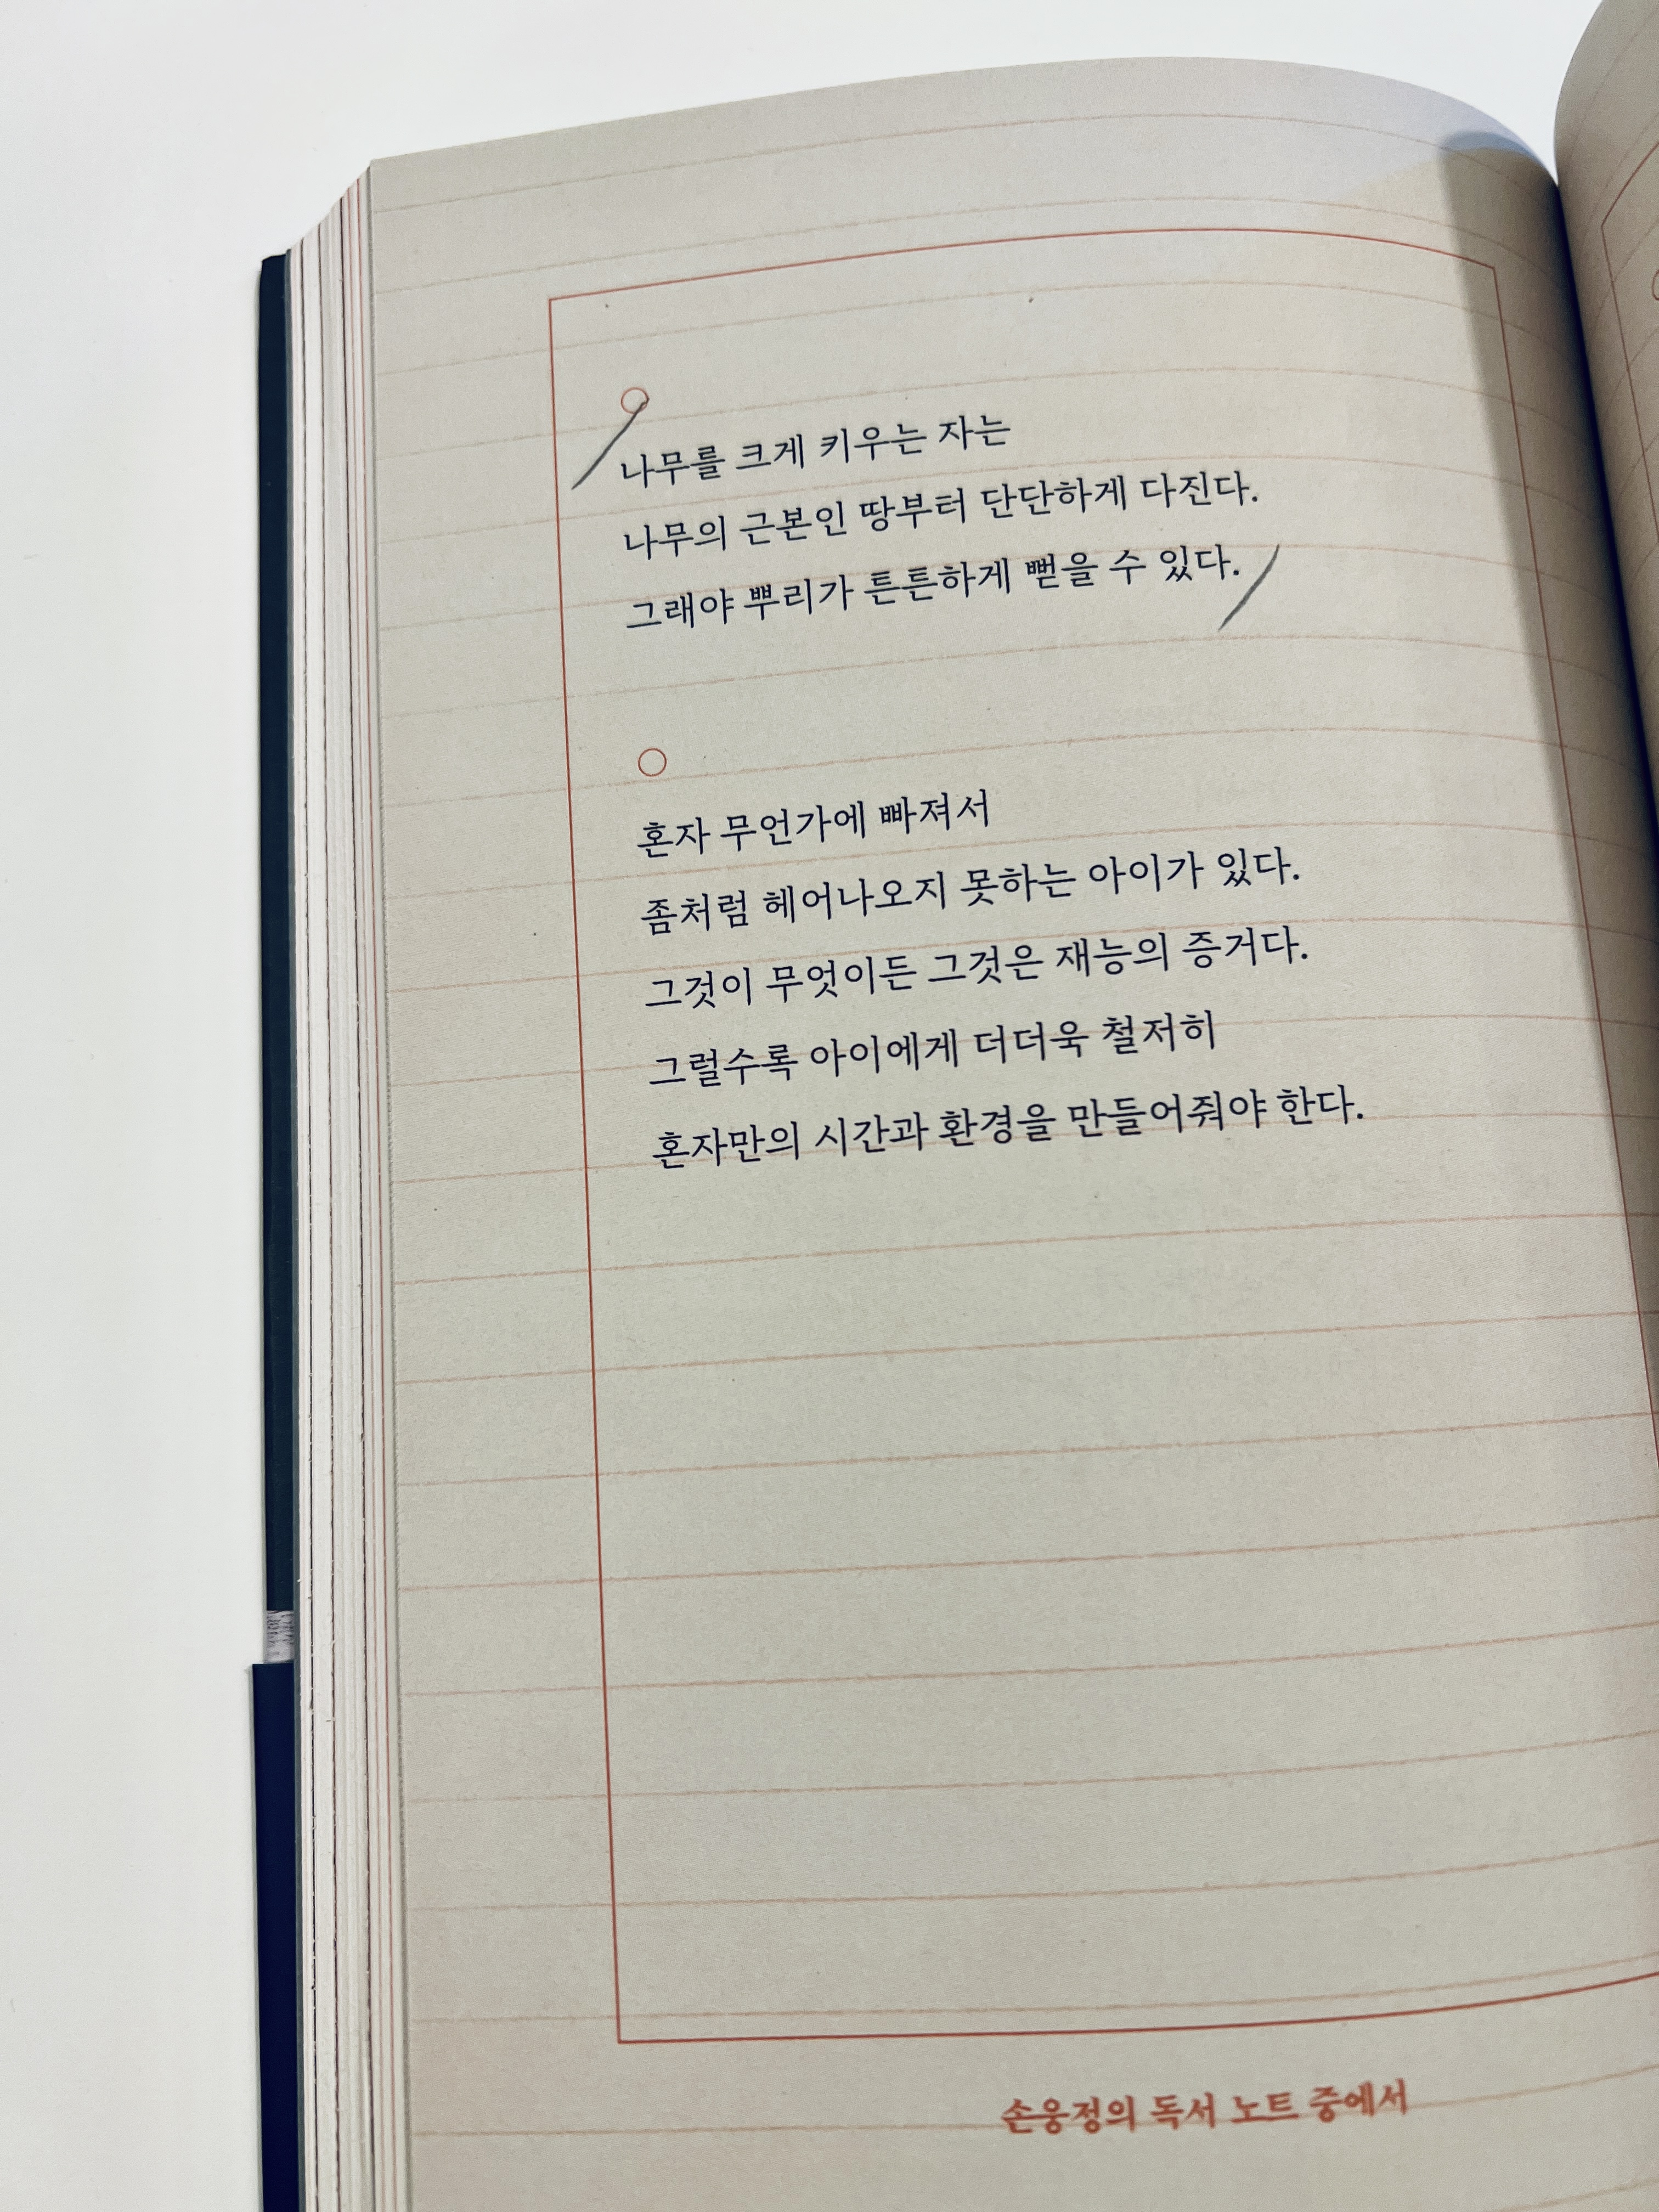 나무를 크게 키우는 자는
나무의 근본인 땅부터 단단하게 다진다.
그래야 뿌리가 튼튼하게 뻗을 수 있다.
혼자 무언가에 빠져서
좀처럼 헤어나오지 못하는 아이가 있다.
그것이 무엇이든 그것은 재능의 증거다.
그럴수록 아이에게 더더욱 철저히
혼자만의 시간과 환경을 만들어줘야 한다.
손웅정의 독서 노트 중에서